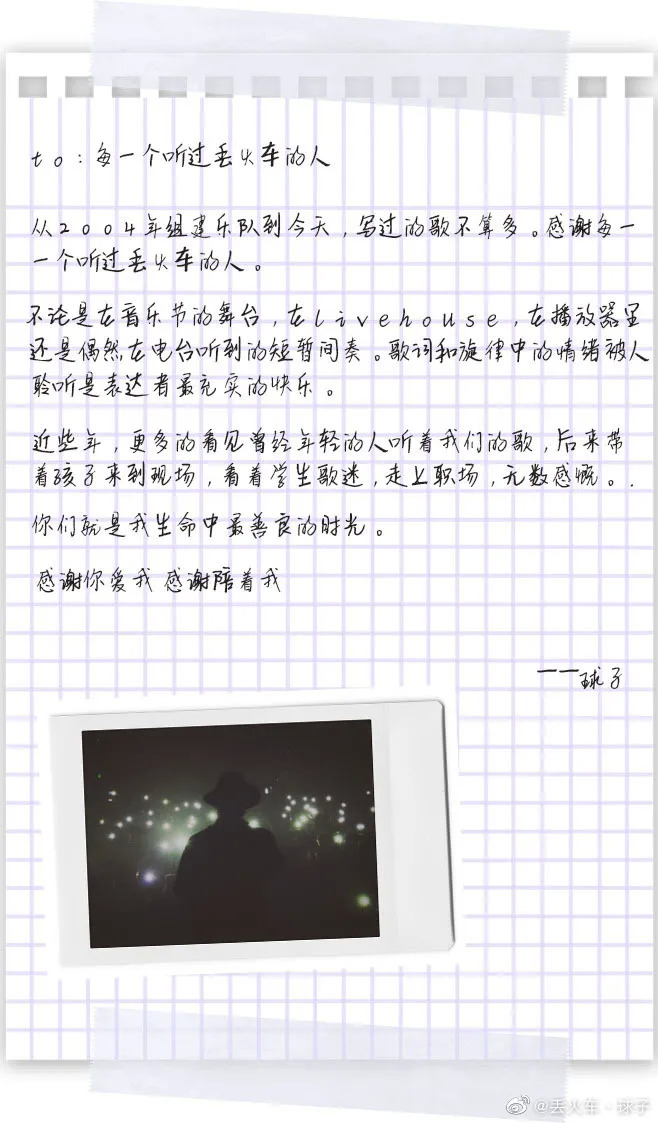 to:每一个听过丢火车的人
从2004年组建乐队到今天,写过的歌不算多。感谢每一
一个听过丢火车的人。
不论是在音乐节的舞台,在livehouse,在播放器里
还是偶然在电台听到的短暂间奏。歌词和旋律中的情绪被人
聆听是表达者最充实的快乐。
近些年,更多的看见曾经年轻的人听着我们的歌,后来带
着孩子来到现场,看着学生歌迷,走上职场,无数感慨。.
你们就是我生命中最善良的时光。
感谢你爱我 感谢陪着我
——球子
@丢火车·球子